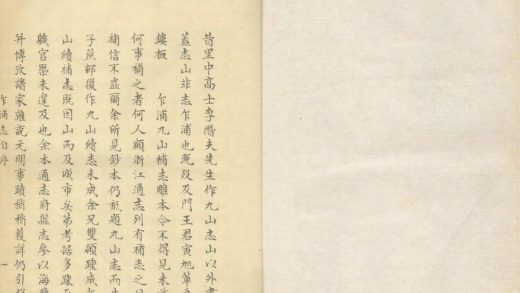 昔里中高士李潛夫先生作九山志山以外書
蓋志山非志乍浦也既殁及門王君寅旭輩為
鏤板　乍浦九山補志雕本今不得見未
何事補之者何人顧浙江通志列有補志之目
補信不虛爾余所見鈔本仍祗題九山志而
子蕉邨復作九山續志未成余兄雙顥踵成
山續補志既因山而及城市矣第考据多疎
職官槩未遑及也余本通志府縣志參以海
并博攷諸家雜說元明事蹟稍稍覆詳仍引
乍浦志自序　一